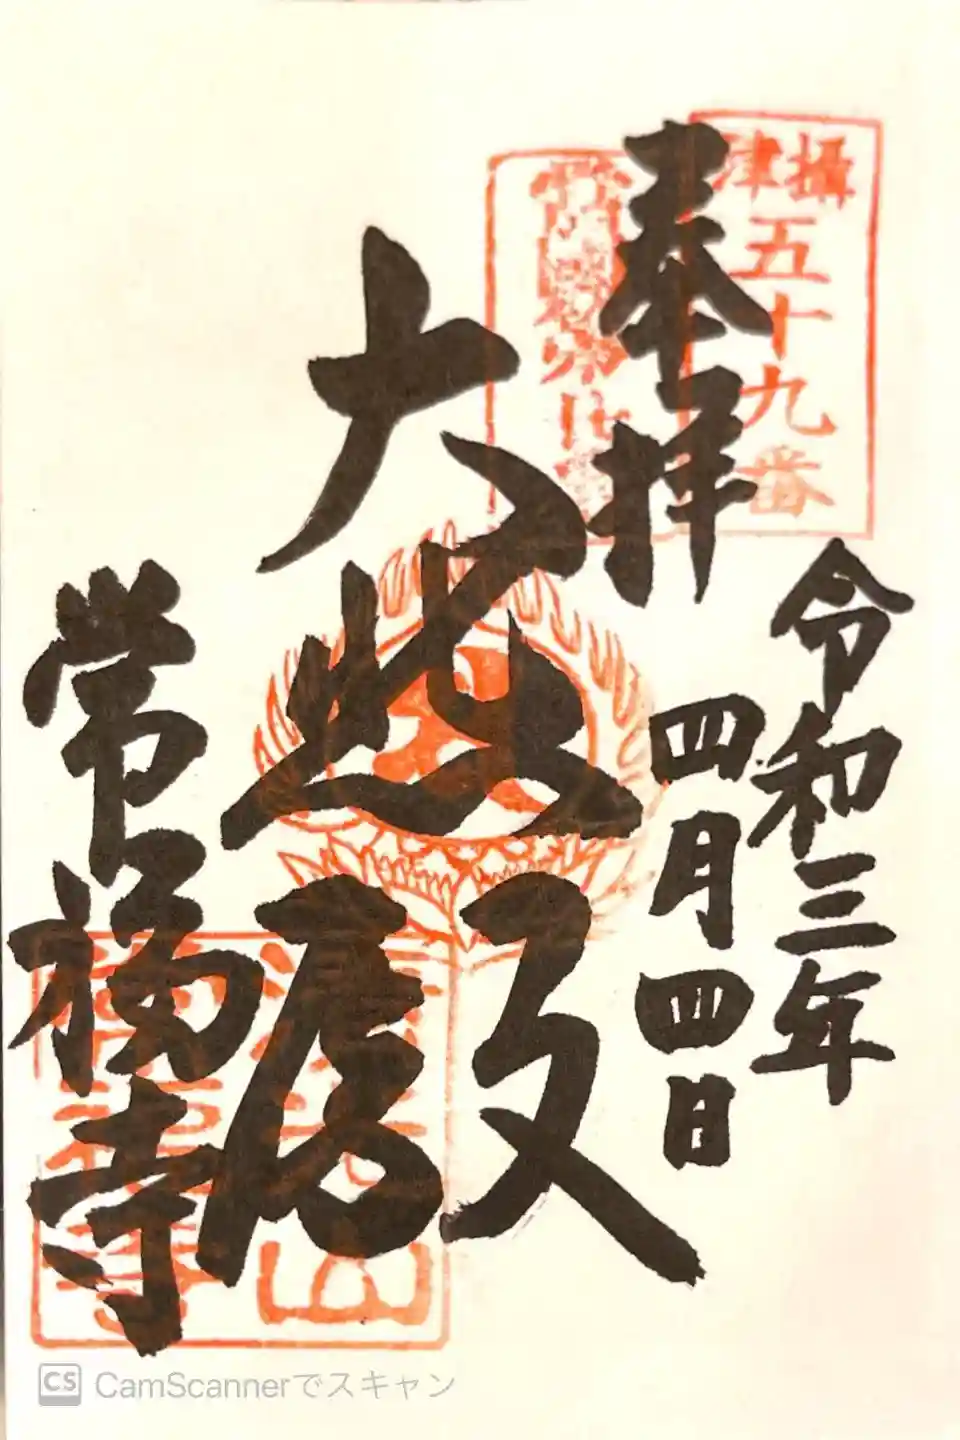 奉拝
令和三年
四月四日
大悲殿
常福寺
摂津
五十九番
CS CamScannerでスキャン